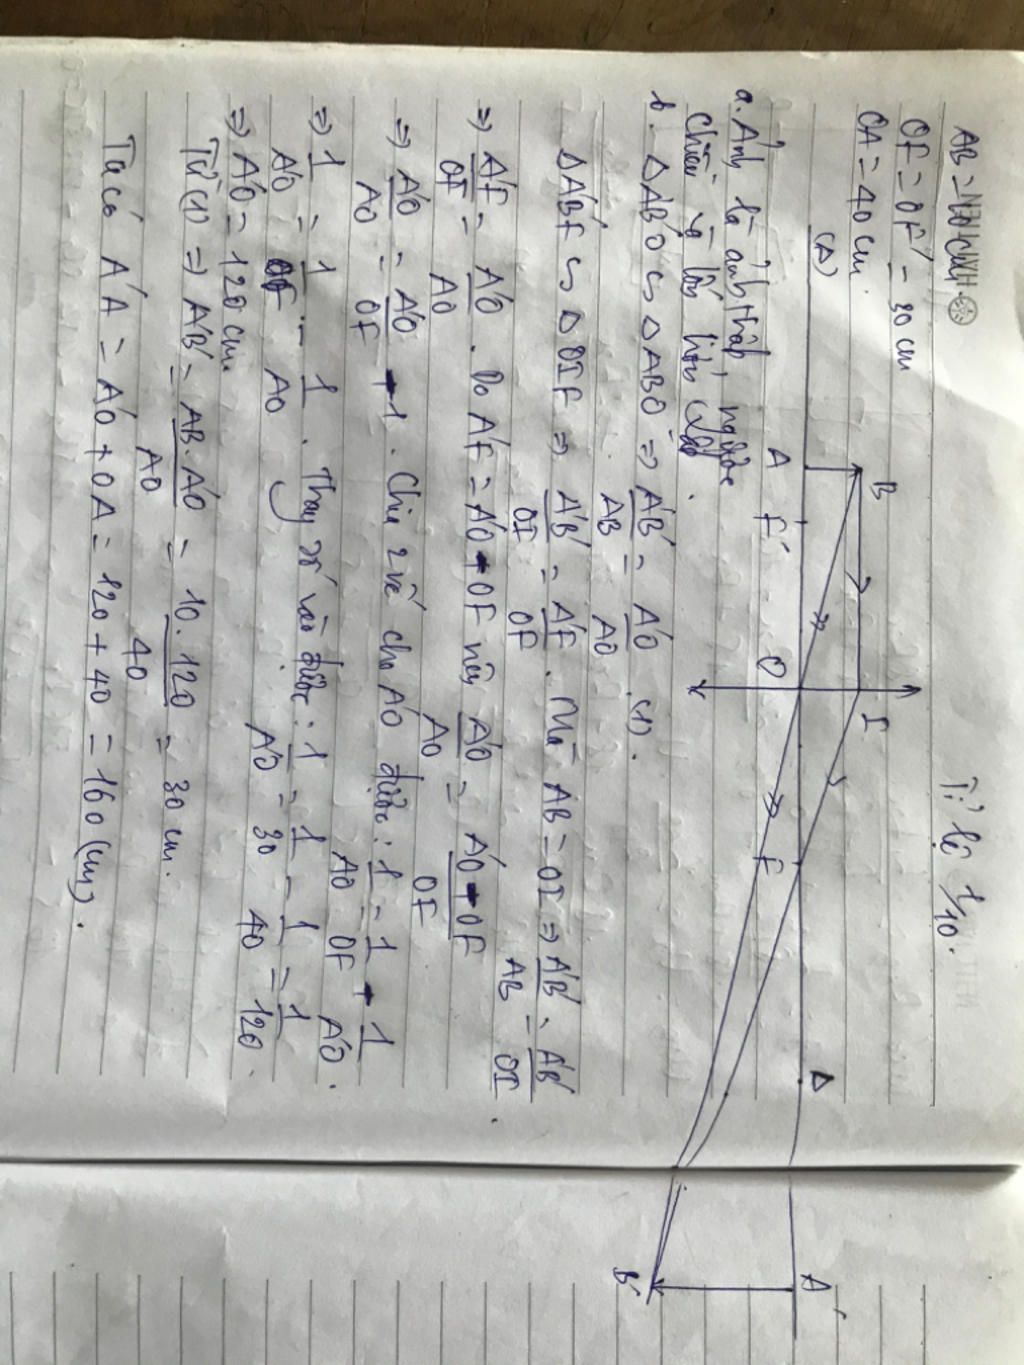 AB =
OF = OF' = 30 cm
OA = 40 cm.
Tỉ lệ 1/10.
(Δ)
B
I
A
F'
O
F
Δ
A'
B'
a. Ảnh là ảnh thật, ngược
chiều và lớn hơn vật.
b. ΔA'B'O ∽ ΔABO => A'B'/AB = A'O/AO (1).
ΔA'B'F ∽ ΔOIF => A'B'/OI = A'F/OF. Mà AB = OI => A'B'/AB = A'B'/OI.
=> A'F/OF = A'O/AO. Do A'F = A'O - OF nên A'O/AO = A'O - OF/OF
=> A'O/AO = A'O/OF - 1. Chia 2 vế cho A'O được: 1/AO = 1/OF - 1/A'O.
=> 1/A'O = 1/OF - 1/AO. Thay số vào được: 1/A'O = 1/30 - 1/40 = 1/120.
=> A'O = 120 cm.
Từ (1) => A'B' = AB.A'O/AO = 10.120/40 = 30 cm.
Ta có A'A = A'O + OA = 120 + 40 = 160 (cm).